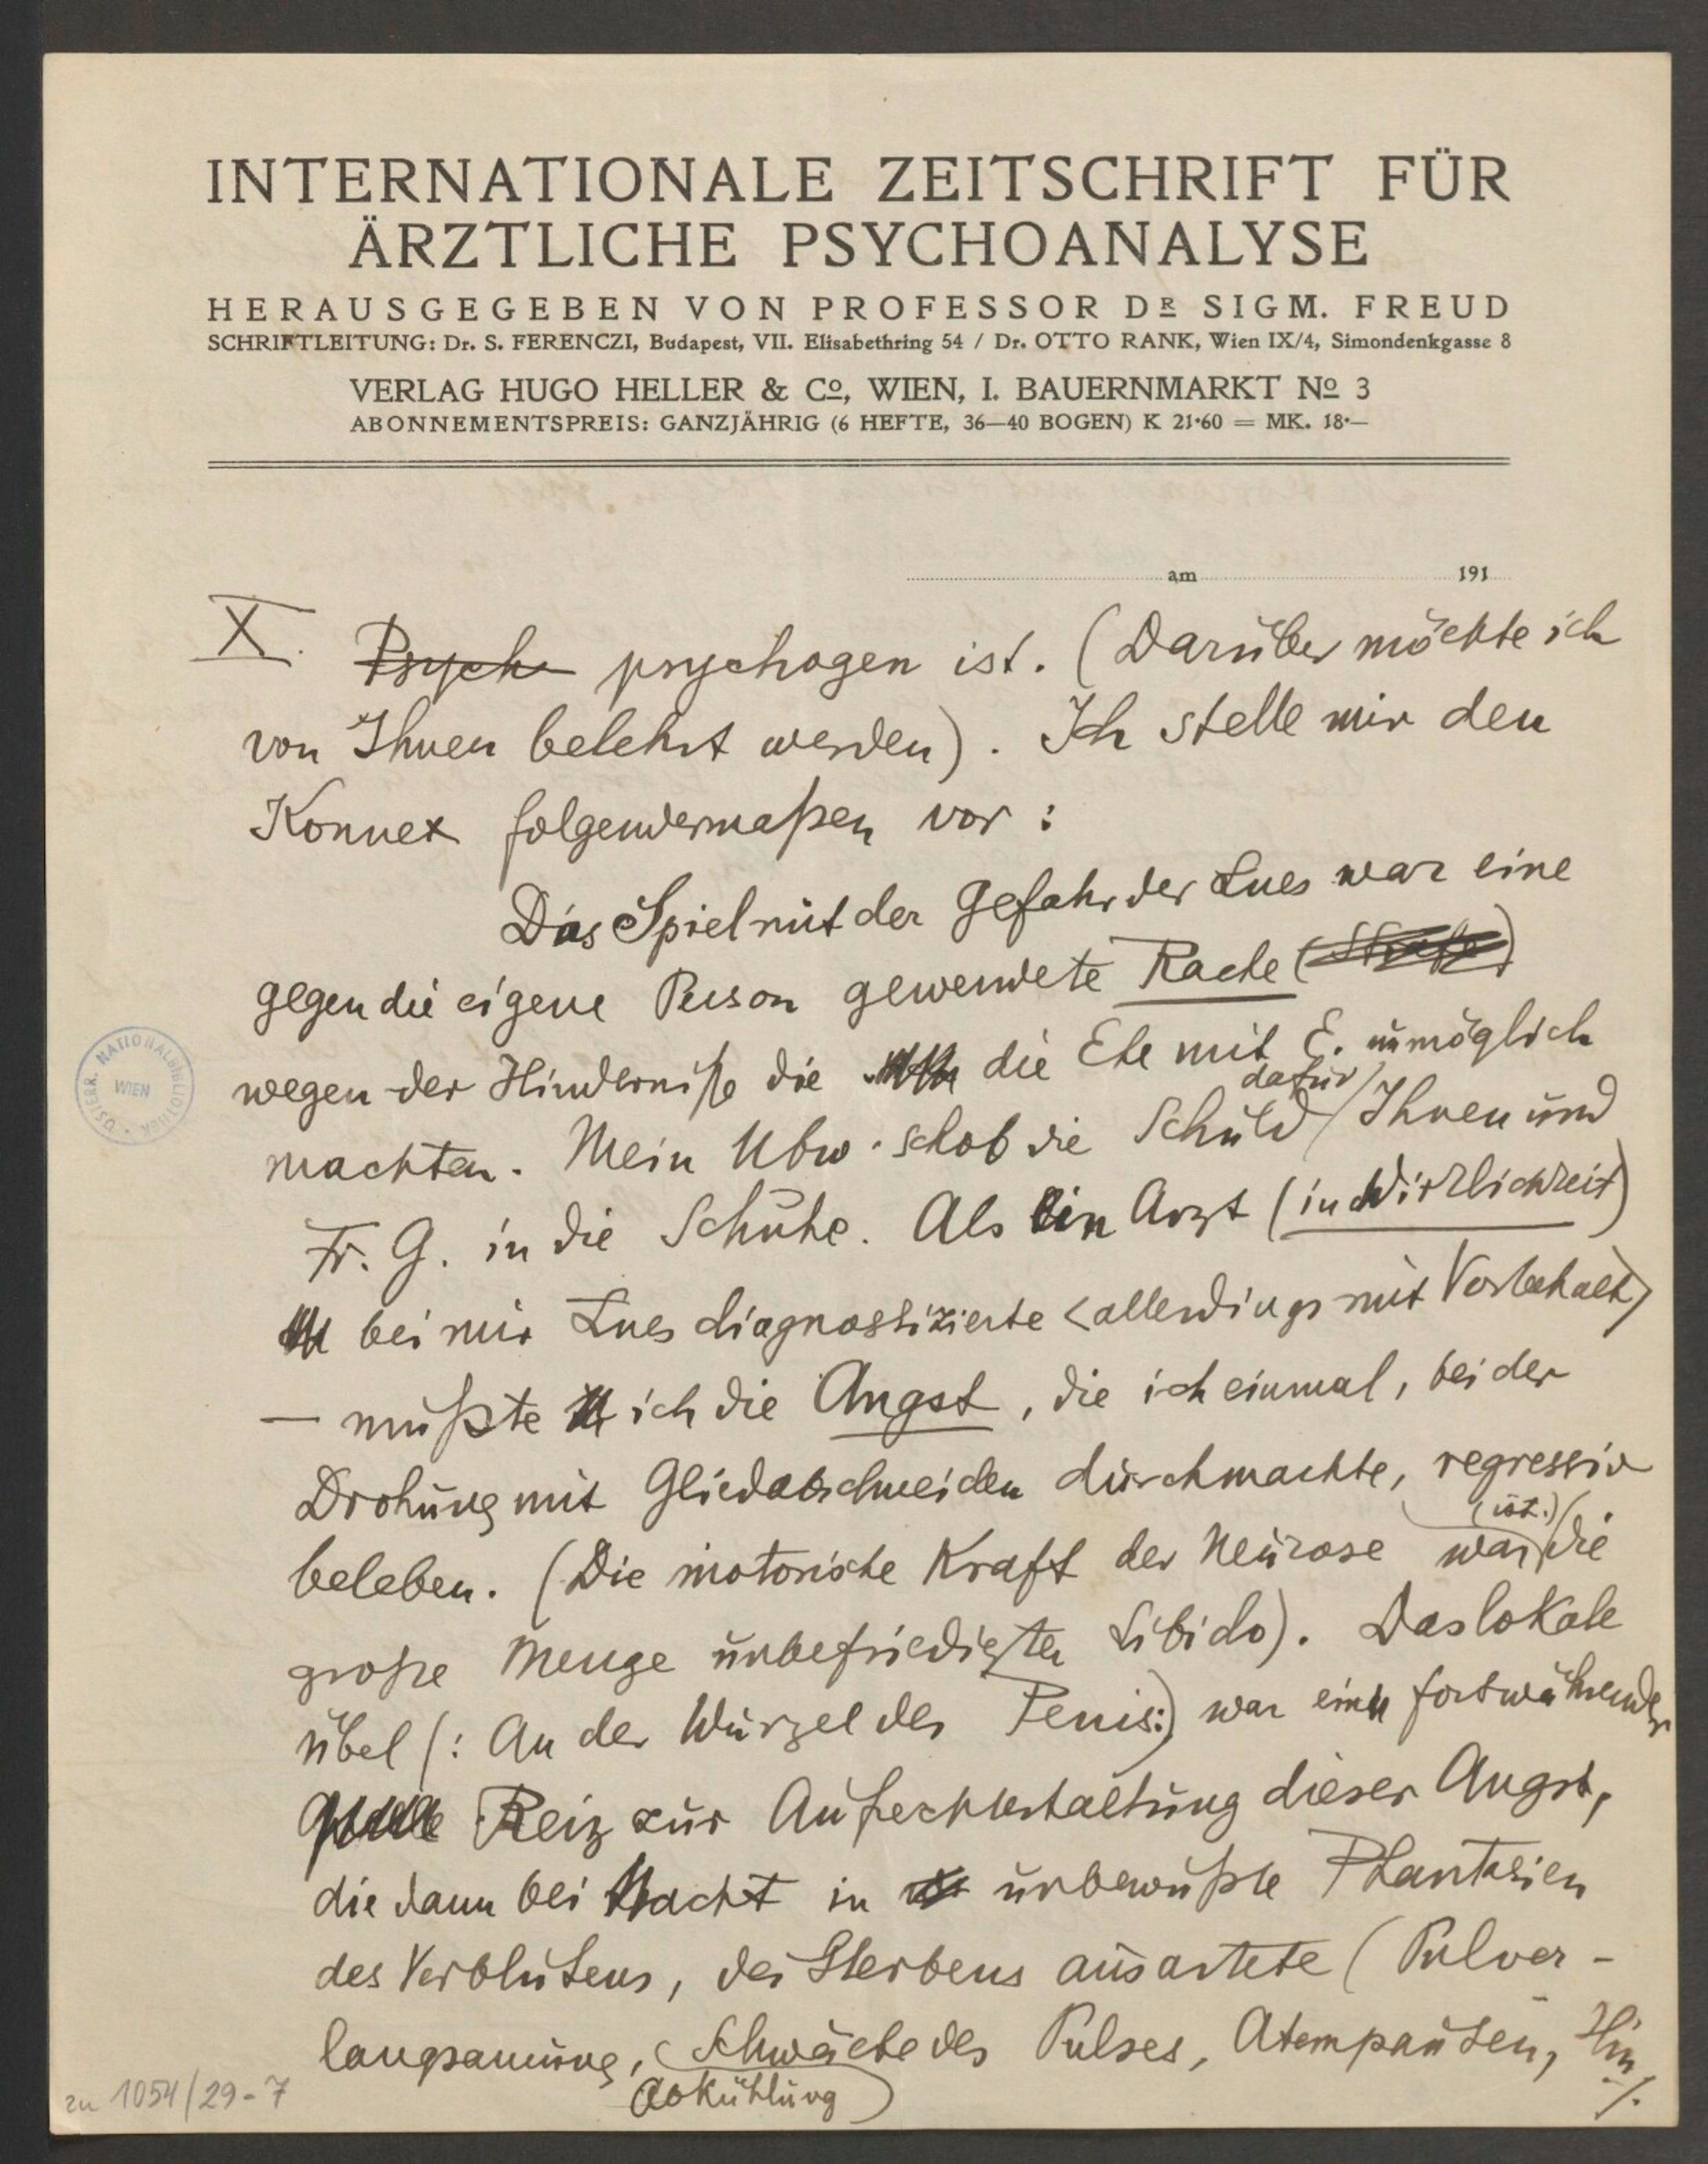 INTERNATIONALE ZEITSCHRIFT FÜR
ÄRZTLICHE PSYCHOANALYSE
HERAUSGEGEBEN VON PROFESSOR DR SIGM. FREUD
SCHRIFTLEITUNG: Dr. S. FERENCZI, Budapest, VII. Elisabethring 54 / Dr. OTTO RANK, Wien IX/4, Simondenkgasse 8
VERLAG HUGO HELLER & Co, WIEN, I. BAUERNMARKT No 3
ABONNEMENTSPREIS: GANZJÄHRIG (6 HEFTE, 36—40 BOGEN) K 21·60 = MK. 18·—
am 191
X. Psych psychogen ist. (Darüber möchte ich
von Ihnen belehrt werden). Ich stelle mir den
Konnex folgendermaßen vor:
Das Spiel mit der Gefahr der Lues war eine
gegen die eigene Person gewendete Rache (Strafe)
wegen der Hinderniße die die Ehe mit E. unmöglich
machten. Mein Ubw. schob die Schuld dafür Ihnen und
Fr. G. in die Schuhe. Als ein Arzt (in Wirklichkeit)
bei mir Lues diagnostizierte <allerdings mit Vorbehalt>
— mußte ich die Angst, die ich einmal, bei der
Drohung mit Gliedabschneiden durchmachte, regressiv
beleben. (Die motorische Kraft der Neurose war (ist.) die
große Menge unbefriedigter Libido). Das lokale
Übel (: An der Wurzel des Penis:) war ein fortwährender
Quelle Reiz zur Aufrechterhaltung dieser Angst,
die dann bei Nacht in unbewußte Phantasien
des Verblutens, des Sterbens ausartete (Pulver-
langsamung, Schwäche des Pulses, Atempausen, Hin
Abkühlung) ./.
ÖSTERR. NATIONALBIBLIOTHEK WIEN
zu 1054/29-7